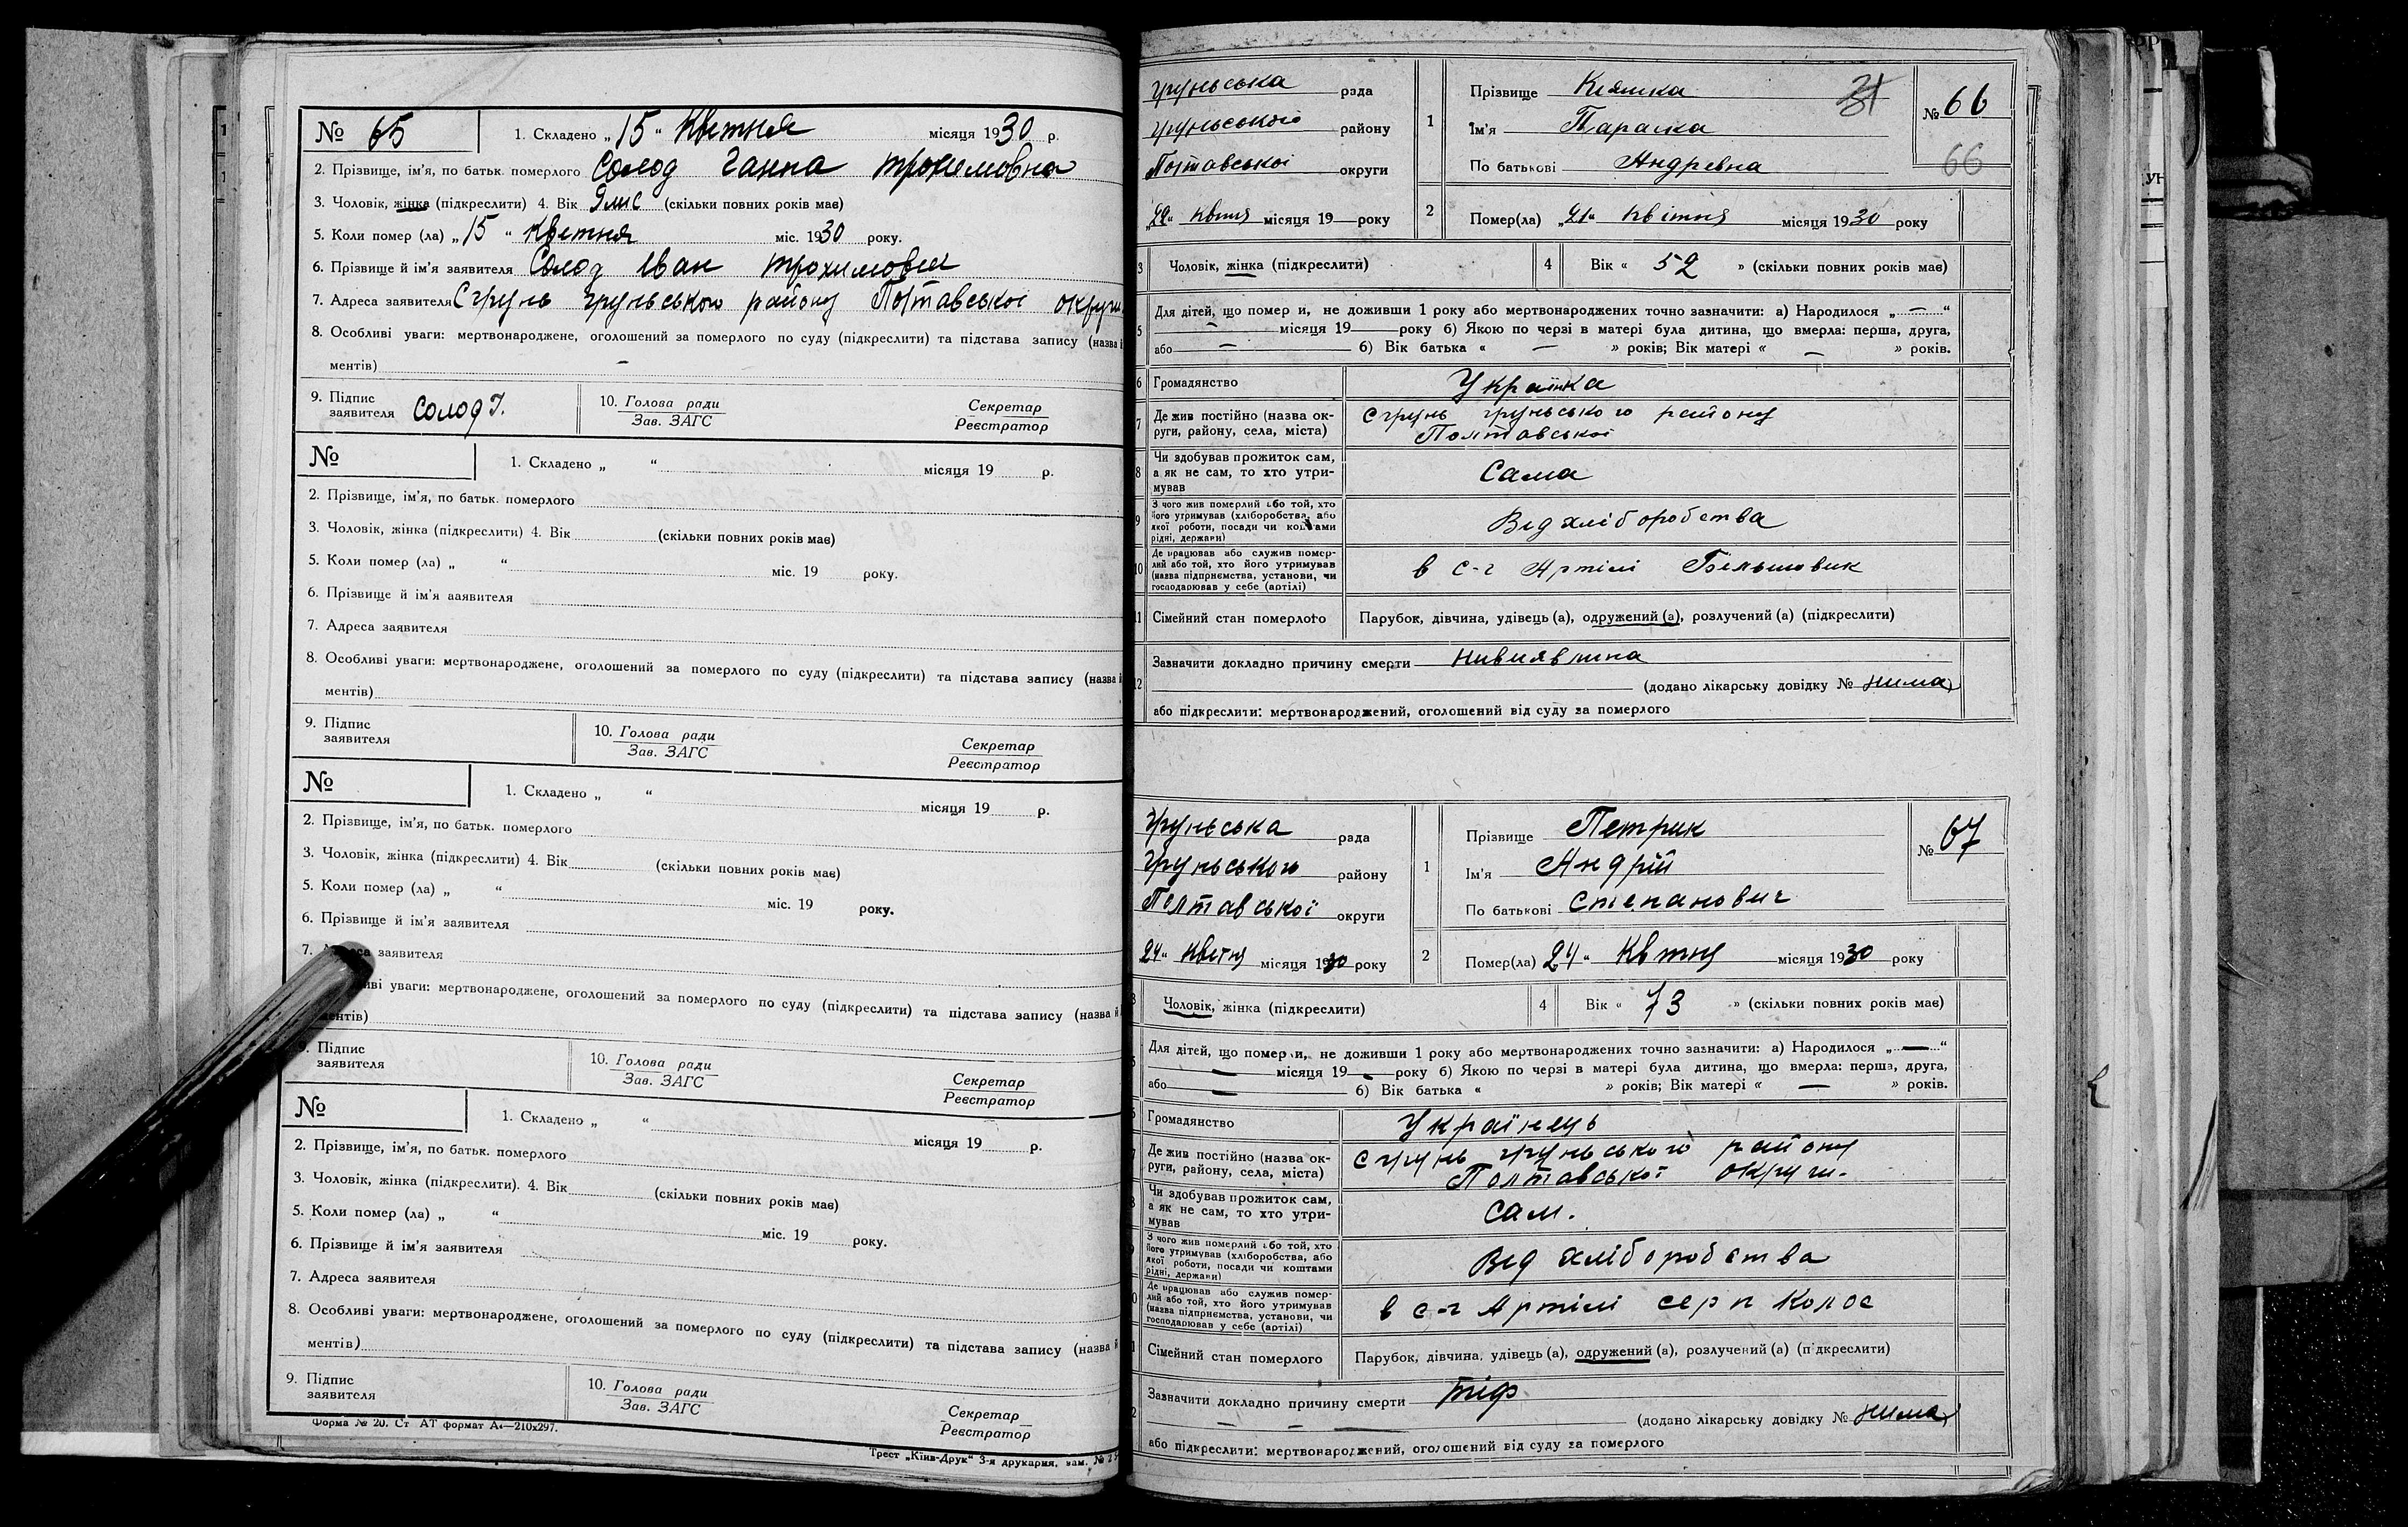 № 65
1. Складено „15“ Кветня місяця 1930 р.
2. Прізвище, ім'я, по батьк. померлого Солод Ганна Трохимовна
3. Чоловік, жінка (підкреслити) 4. Вік 9 мис (скільки повних років має)
5. Коли помер (ла) „15“ Кветня міс. 1930 року.
6. Прізвище й ім'я заявителя Солод Іван Трохимович
7. Адреса заявителя С грунь грунського району Полтавської округи
8. Особливі уваги: мертвонароджене, оголошений за померлого по суду (підкреслити) та підстава запису (назва й
ментів) –
9. Підпис заявителя Солод І.
10. Голова ради
Зав. ЗАГС
Секретар
Реєстратор
№
1. Складено „ “ місяця 19 р.
2. Прізвище, ім'я, по батьк. померлого
3. Чоловік, жінка (підкреслити) 4. Вік (скільки повних років має)
5. Коли помер (ла) „ “ міс. 19 року.
6. Прізвище й ім'я заявителя
7. Адреса заявителя
8. Особливі уваги: мертвонароджене, оголошений за померлого по суду (підкреслити) та підстава запису (назва й
ментів)
9. Підпис заявителя
10. Голова ради
Зав. ЗАГС
Секретар
Реєстратор
№
1. Складено „ “ місяця 19 р.
2. Прізвище, ім'я, по батьк. померлого
3. Чоловік, жінка (підкреслити) 4. Вік (скільки повних років має)
5. Коли помер (ла) „ “ міс. 19 року.
6. Прізвище й ім'я заявителя
7. заявителя
уваги: мертвонароджене, оголошений за померлого по суду (підкреслити) та підстава запису (назва й
ментів)
9. Підпис заявителя
10. Голова ради
Зав. ЗАГС
Секретар
Реєстратор
№
1. Складено „ “ місяця 19 р.
2. Прізвище, ім'я, по батьк. померлого
3. Чоловік, жінка (підкреслити). 4. Вік (скільки повних років має)
5. Коли помер (ла) „ “ міс. 19 року.
6. Прізвище й ім'я заявителя
7. Адреса заявителя
8. Особливі уваги: мертвонароджене, оголошений за померлого по суду (підкреслити) та підстава запису (назва й
ментів)
9. Підпис заявителя
10. Голова ради
Зав. ЗАГС
Секретар
Реєстратор
Форма № 20. Ст АТ формат А4—210x297.
Трест „Київ-Друк“ 3-я друкарня, зам. №
груньська рада
груньського району
Полтавської округи
„22“ Квітня місяця 19 року
1
Прізвище Кияшка
Ім'я Параска
По батькові Андревна
31
№ 66
66
2
Помер(ла) „21“ Квітня місяця 1930 року
3 Чоловік, жінка (підкреслити)
4 Вік « 52 » (скільки повних років має)
5 Для дітей, що померли, не доживши 1 року або мертвонароджених точно зазначити: а) Народилося „ – “
– місяця 19 року б) Якою по черзі в матері була дитина, що вмерла: перша, друга,
або – б) Вік батька « – » років; Вік матері « – » років.
6 Громадянство Українка
7 Де жив постійно (назва округи, району, села, міста) с грунь груньського району
Полтавської
8 Чи здобував прожиток сам, а як не сам, то хто утримував Сама
9 З чого жив померлий або той, хто його утримував (хліборобства, або якої роботи, посади чи коштами рідні, держави) Від хліборобства
10 Де працював або служив померлий або той, хто його утримував (назва підприємства, установи, чи господарював у себе (артілі) в с-г Артілі Більшовик
11 Сімейний стан померлого Парубок, дівчина, удівець (а), одружений (а), розлучений (а) (підкреслити)
12 Зазначити докладно причину смерти нивиявлина
(додано лікарську довідку № нима)
або підкреслити: мертвонароджений, оголошений від суду за померлого
Груньська рада
Груньського району
Полтавської округи
24“ Квітня місяця 1930 року
1
Прізвище Петрик
Ім'я Андрій
По батькові Степанович
№ 67
2
Помер(ла) 24“ Квтня місяця 1930 року
3 Чоловік, жінка (підкреслити)
4 Вік « 73 » (скільки повних років має)
5 Для дітей, що померли, не доживши 1 року або мертвонароджених точно зазначити: а) Народилося „ — “
— місяця 19 року б) Якою по черзі в матері була дитина, що вмерла: перша, друга,
або — б) Вік батька « » років; Вік матері « — » років.
6 Громадянство Українець
7 Де жив постійно (назва округи, району, села, міста) с грунь груньського району
Полтавської округи.
8 Чи здобував прожиток сам, а як не сам, то хто утримував сам.
9 З чого жив померлий або той, хто його утримував (хліборобства, або якої роботи, посади чи коштами рідні, держави) Від хліборобства
10 Де працював або служив померлий або той, хто його утримував (назва підприємства, установи, чи господарював у себе (артілі) в с-г Артілі серп Колос
11 Сімейний стан померлого Парубок, дівчина, удівець (а), одружений (а), розлучений (а) (підкреслити)
12 Зазначити докладно причину смерти тіф
– – — (додано лікарську довідку № нима)
або підкреслити: мертвонароджений, оголошений від суду за померлого